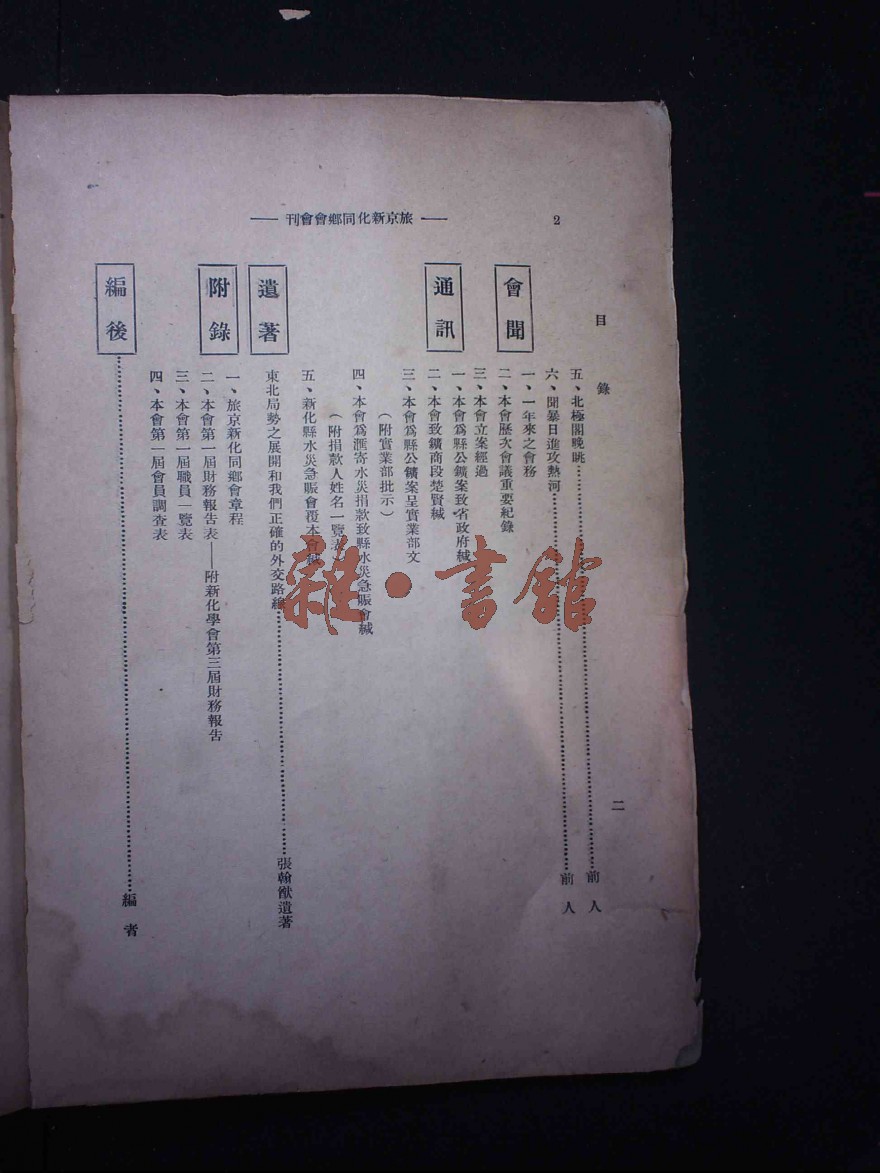 2
旅京新化同鄉會會刊
目錄
二
五、北極閣晚眺……前人
六、聞暴日進攻熱河……前人
會聞
一、一年來之會務
二、本會歷次會議重要紀錄
三、本會立案經過
通訊
一、本會爲縣公鑛案致省政府緘
二、本會致鑛商段楚賢緘
三、本會爲縣公鑛案呈實業部文
（附實業部批示）
四、本會爲滙寄水災捐款致縣水災急賑會緘
（附捐款人姓名一覽表）
五、新化縣水災急賑會覆本會緘
遺著
東北局勢之展開和我們正確的外交路線……張翰猷遺著
附錄
一、旅京新化同鄉會章程
二、本會第一屆財務報告表——附新化學會第三屆財務報告
三、本會第一屆職員一覽表
四、本會第一屆會員調查表
編後……編者
雜·書館